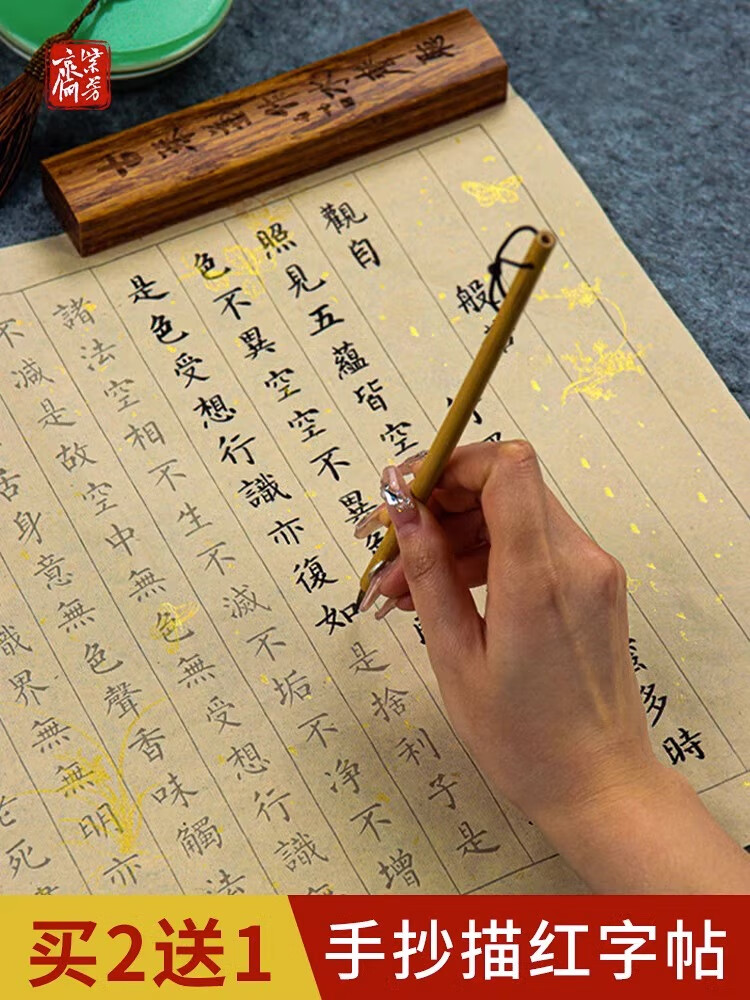 紫芳
般
觀自
行
多時
照見五蘊皆空
色不異空空不異色
是色受想行識亦復如是捨利子是
諸法空相不生不滅不垢不净不增
不減是故空中無色無受想行識無
舌身意無色聲香味觸法
識界無無明亦
死
买2送1
手抄描红字帖